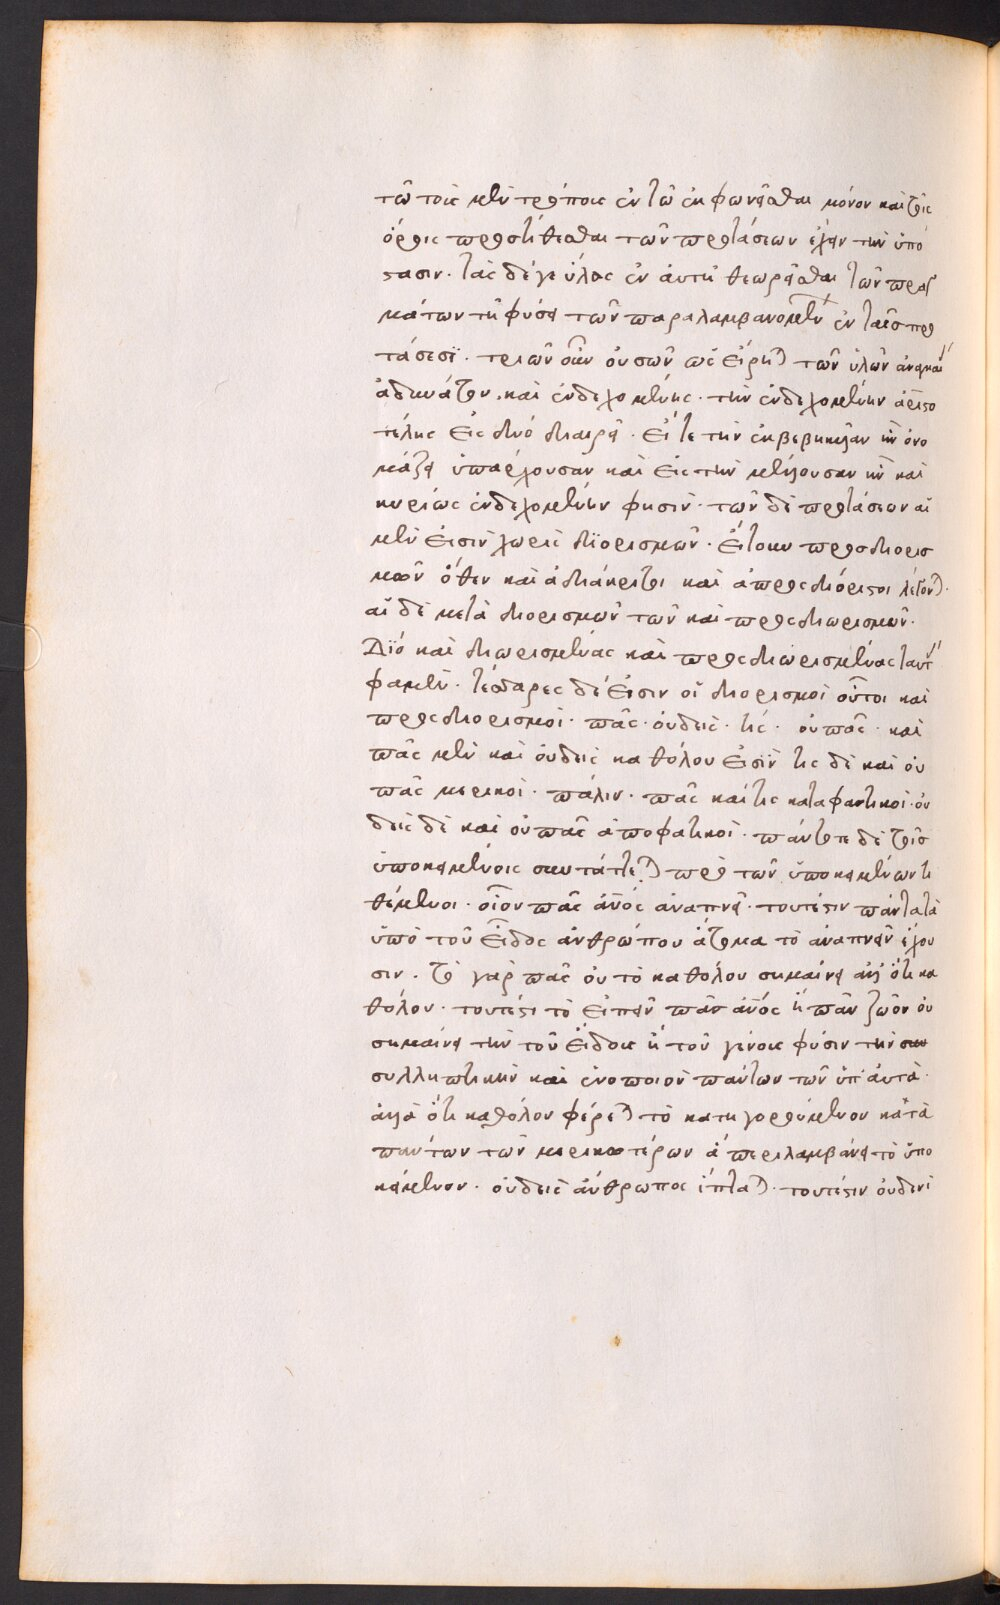 τῶ τοὶς μὲν τρόποις ἐν τῶ ἐκφωνεῖσθαι μόνον καὶ τοῖς
ὅροις προστίθεσθαι τῶν προτάσεων ἔχειν τὴν ὑπό
στασιν. τὰς δέ γε ὕλας ἐν ἀυτῆ θεωρεῖσθαι τῶν πραγ
μάτων τῆ φύσει τῶν παραλαμβανομένων ἐν ταῖς προ
τάσεσϊ. τριῶν οὖν οὐσῶν ὡς εἴρηται τῶν ὑλῶν ἀναγκαί
ἀδυνάτου. καὶ ἐνδεχομένης. τὴν ἐνδεχομένην ἀριστο
τέλης εἰς δυό διαιρεῖ. εἴς τε τὴν ἐκβεβηκυῖαν ἣν ὀνο
μάζει ὑπάρχουσαν καὶ εἰς τὴν μένουσαν ἣν καὶ
κυρίως ἐνδεχομένην φησίν. τῶν δὲ προτάσεων αἱ
μέν εἰσιν χωρὶς διορισμῶν. εἴτουν προσδιορισ
μῶν ὅθεν καὶ ἀδιάκριτοι καὶ ἀπροσδιόριστοι λέγονται.
αἱ δὲ μετὰ διορισμῶν τῶν καὶ προσδιωρισμῶν.
Διό καὶ διωρισμένας καὶ προσδιωρισμένας ταύτ
φαμέν. τέσσαρες δέ εἰσιν οἱ διορισμοὶ οὗτοι καὶ
προσδιορισμοὶ. πᾶς. οὐδεὶς. τὶς. οὐ πᾶς. καὶ
πᾶς μὲν καὶ οὐδεὶς καθόλου εἰσϊν τὶς δὲ καὶ οὐ
πᾶς μερικοὶ. πάλιν. πᾶς καί τις καταφατικοὶ. οὐ
δεὶς δὲ καὶ οὐ πᾶς ἀποφατικοὶ. πάντοτε δὲ τοῖς
ὑποκειμένοις συντάττεται πρὸ τῶν ὑποκειμένων τι
θέμενοι. οἷον πᾶς ἄνος ἀναπνεῖ. τουτέστιν πάντα τὰ
ὑπὸ τοῦ εἶδος ἀνθρώπου ἄτομα τὸ ἀναπνεῖν ἔχου
σιν. τὸ γὰρ πᾶς οὐ τὸ καθόλου σημαίνει ἀλλ' ὅτι κα
θόλου. τουτέστι τὸ εἰπεῖν πᾶν ἄνος ἢ πᾶν ζῶον οὐ
σημαίνει τὴν τοῦ εἴδους ἢ τοῦ γένους φύσιν τὴν συν
συλληπτικὴν καὶ ἑνοποιὸν πάντων τῶν ὑπ' ἀυτὰ.
ἀλλὰ ὅτι καθόλου φέρεται τὸ κατηγορούμενον κατὰ
πάντων τῶν μερικωτέρων ἃ περιλαμβάνει τὸ ὑπο
κείμενον. οὐδεὶς ἄνθρωπος ἵπταται. τουτέστιν οὐδενὶ